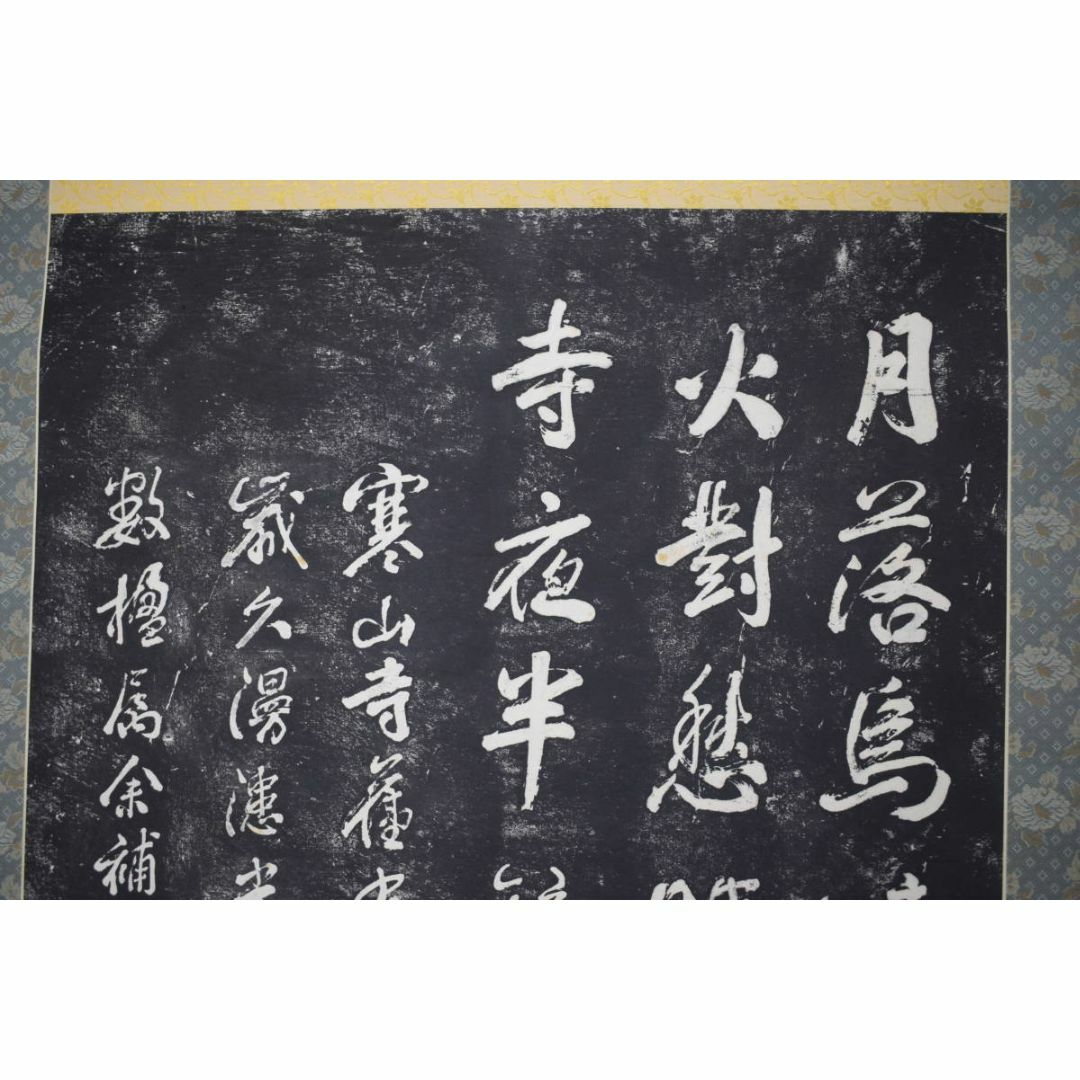 月落烏
火對愁
寺夜半
寒山寺舊
歲久漫漶
數楹屬余補